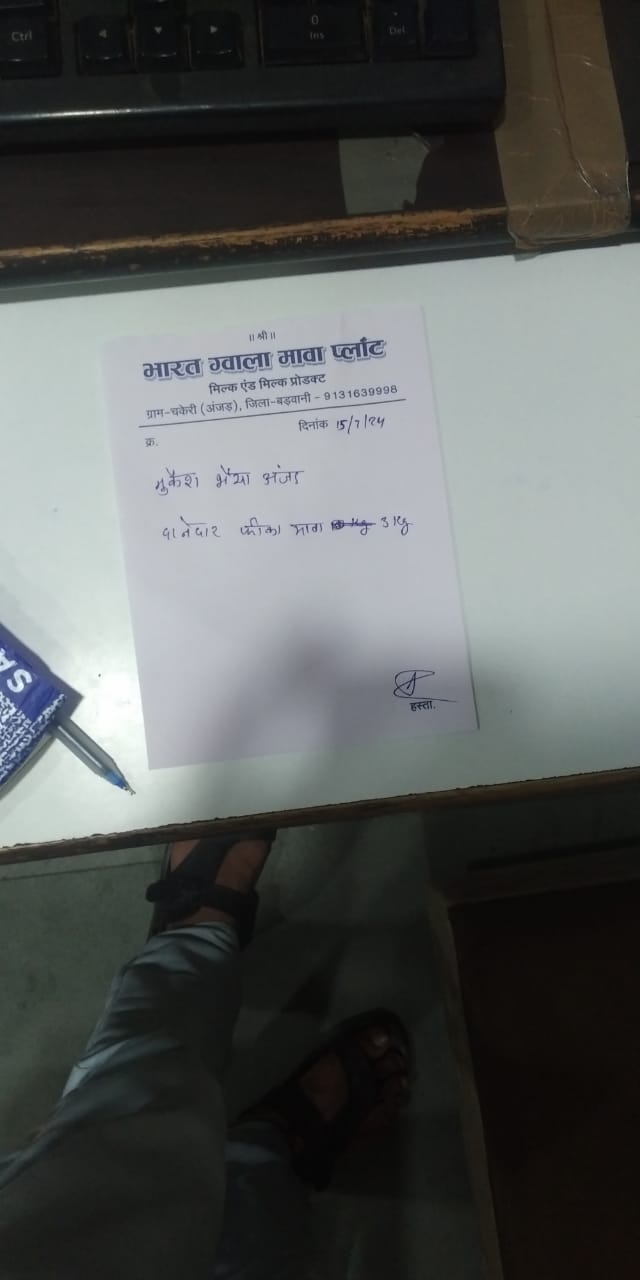 Ctrl
0
Ins
Del
॥ श्री ॥
भारत ग्वाला मावा प्लाँट
मिल्क एंड मिल्क प्रोडक्ट
ग्राम-चकेरी (अंजड़), जिला-बड़वानी - 9131639998
क्र. दिनांक 15/7/24
मुकेश भैया अंजड
दानेदार फीका मावा 3 kg
हस्ता.
SA